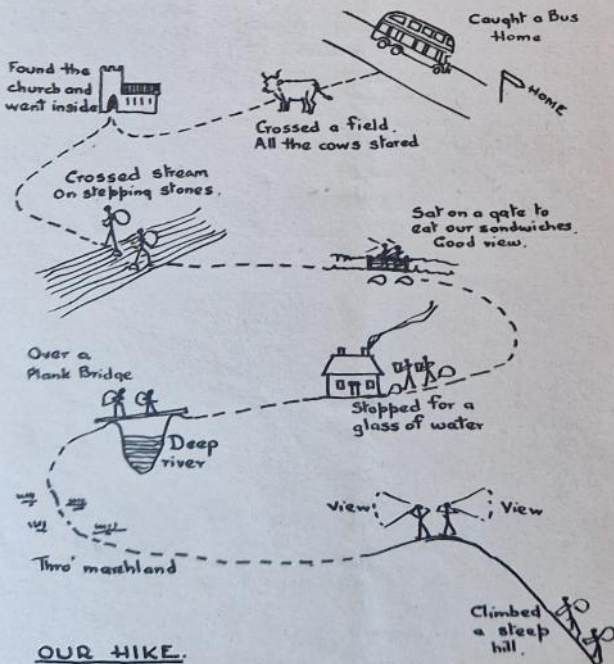 Caught a Bus
Home
HOME
Found the
church and
went inside
Crossed a field.
All the cows stared
Crossed stream
On stepping stones.
Sat on a gate to
eat our sandwiches.
Good view.
Over a
Plank Bridge
Deep
river
Stopped for a
glass of water
View
View
Thro' marshland
Climbed
a steep
hill.
OUR HIKE.